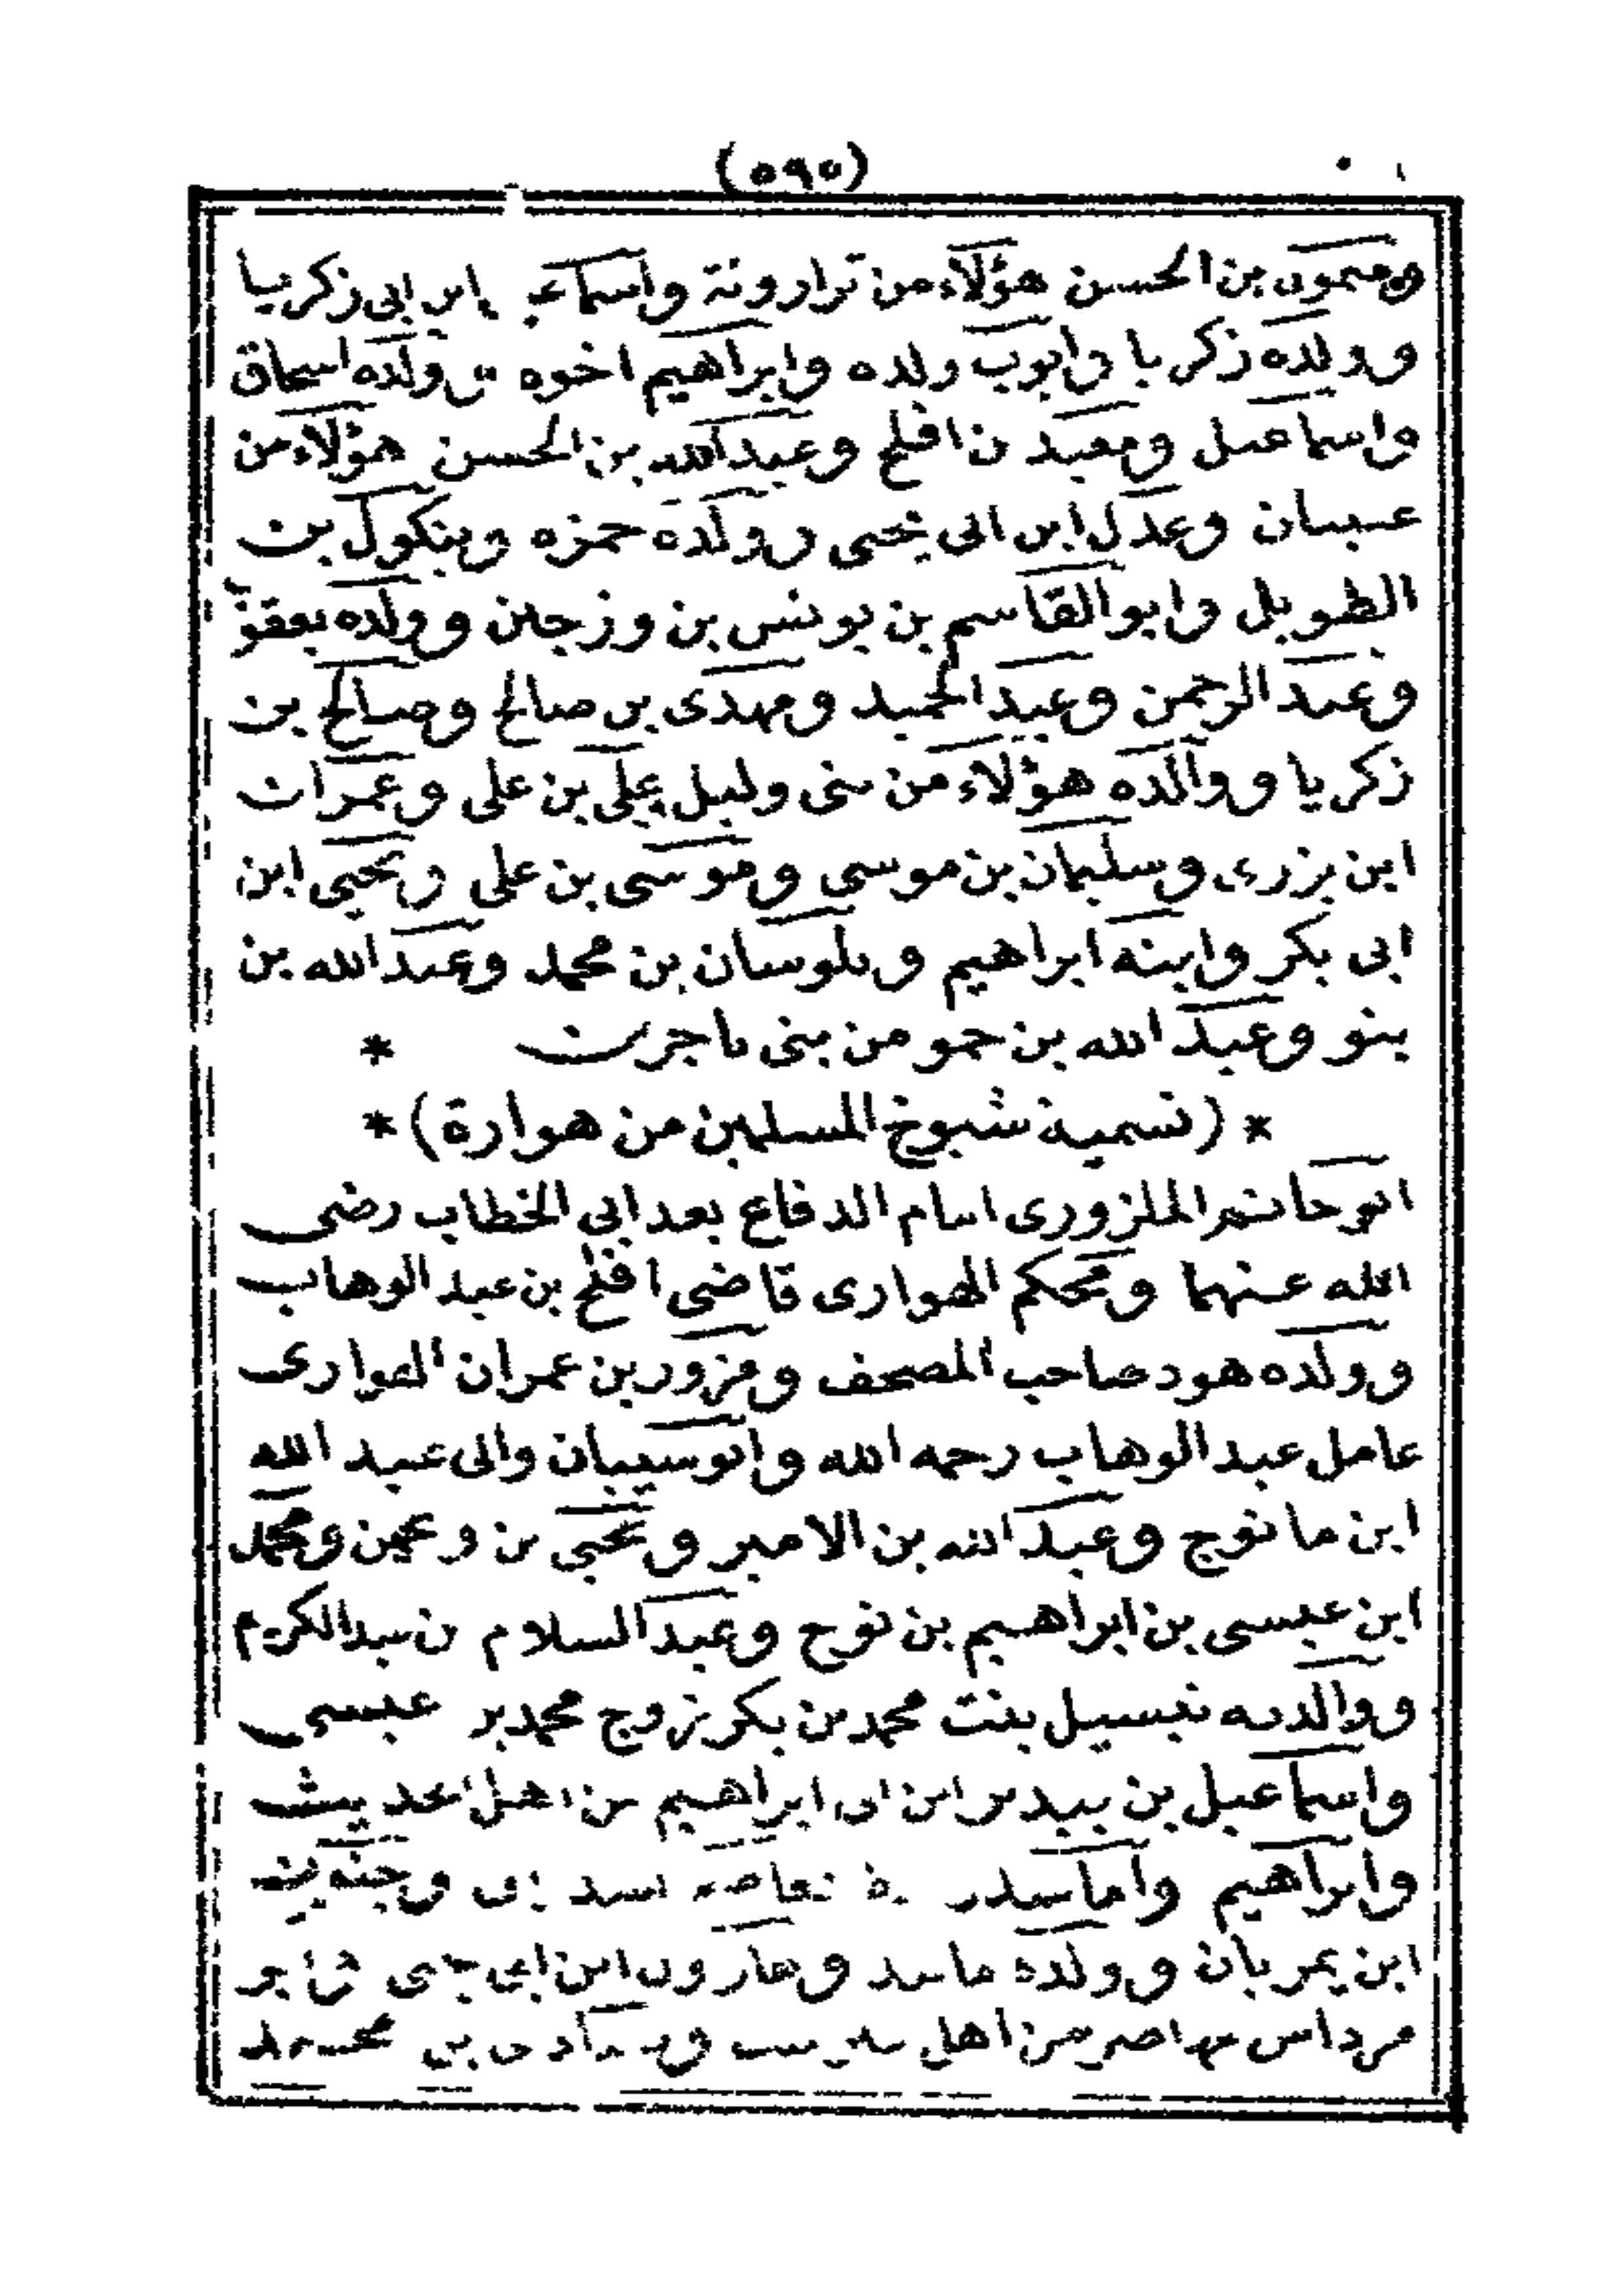 (٥٩٥)
وميمون بن الحسن هؤلاء من ترارونة واسماعيل ابن ابى زكريا
وولده زكريا وايوب ولده وابراهيم اخوه وولده اسحاق
واسماعيل ومعبد بن افلح وعبدالله بن الحسن هؤلاء من
وعدل ابن ابى يحيى وولده حمزه وينكول بن
الطويل وابو القاسم بن يونس بن وزجين وولده يعقوب
وعبد الرحمن وعبد الحميد ومهدى بن صالح وصالح بن
زكريا ووالده هؤلاء من بنى وليل يعلى بن على وعمران
ابن يزرى وسليمان بن موسى وموسى بن على ويحيى ابن
ابى بكر وابنه ابراهيم وبن محمد وعبد الله بن
ينو وعبد الله بن حمو من بنى تاجرت *
* (تسمية شيوخ المسلمين من هوارة) *
ابو حاتم الملزورى امام الدفاع بعد ابى الخطاب رضى
الله عنهما ومحكم الهوارى قاضى افلح بن عبد الوهاب
وولده هود صاحب المصحف ومزور بن عمران الهوارى
عامل عبد الوهاب رحمه الله وابو سيبان والى عبيد الله
ابن مانوج وعبد الله بن الامير ويحيى بن ومحمد
ابن عيسى بن ابراهيم بن نوح وعبد السلام بن عبد الكريم
ووالدته تيسيل بنت محمد من بكر زوج محمد بن عيسى
واسماعيل بن بيدير ابن ابى ابراهيم من اهل الحديث
وابراهيم
ابن يمريان وولده وهارون ابن ابى
مرداس من اهل بن محمد